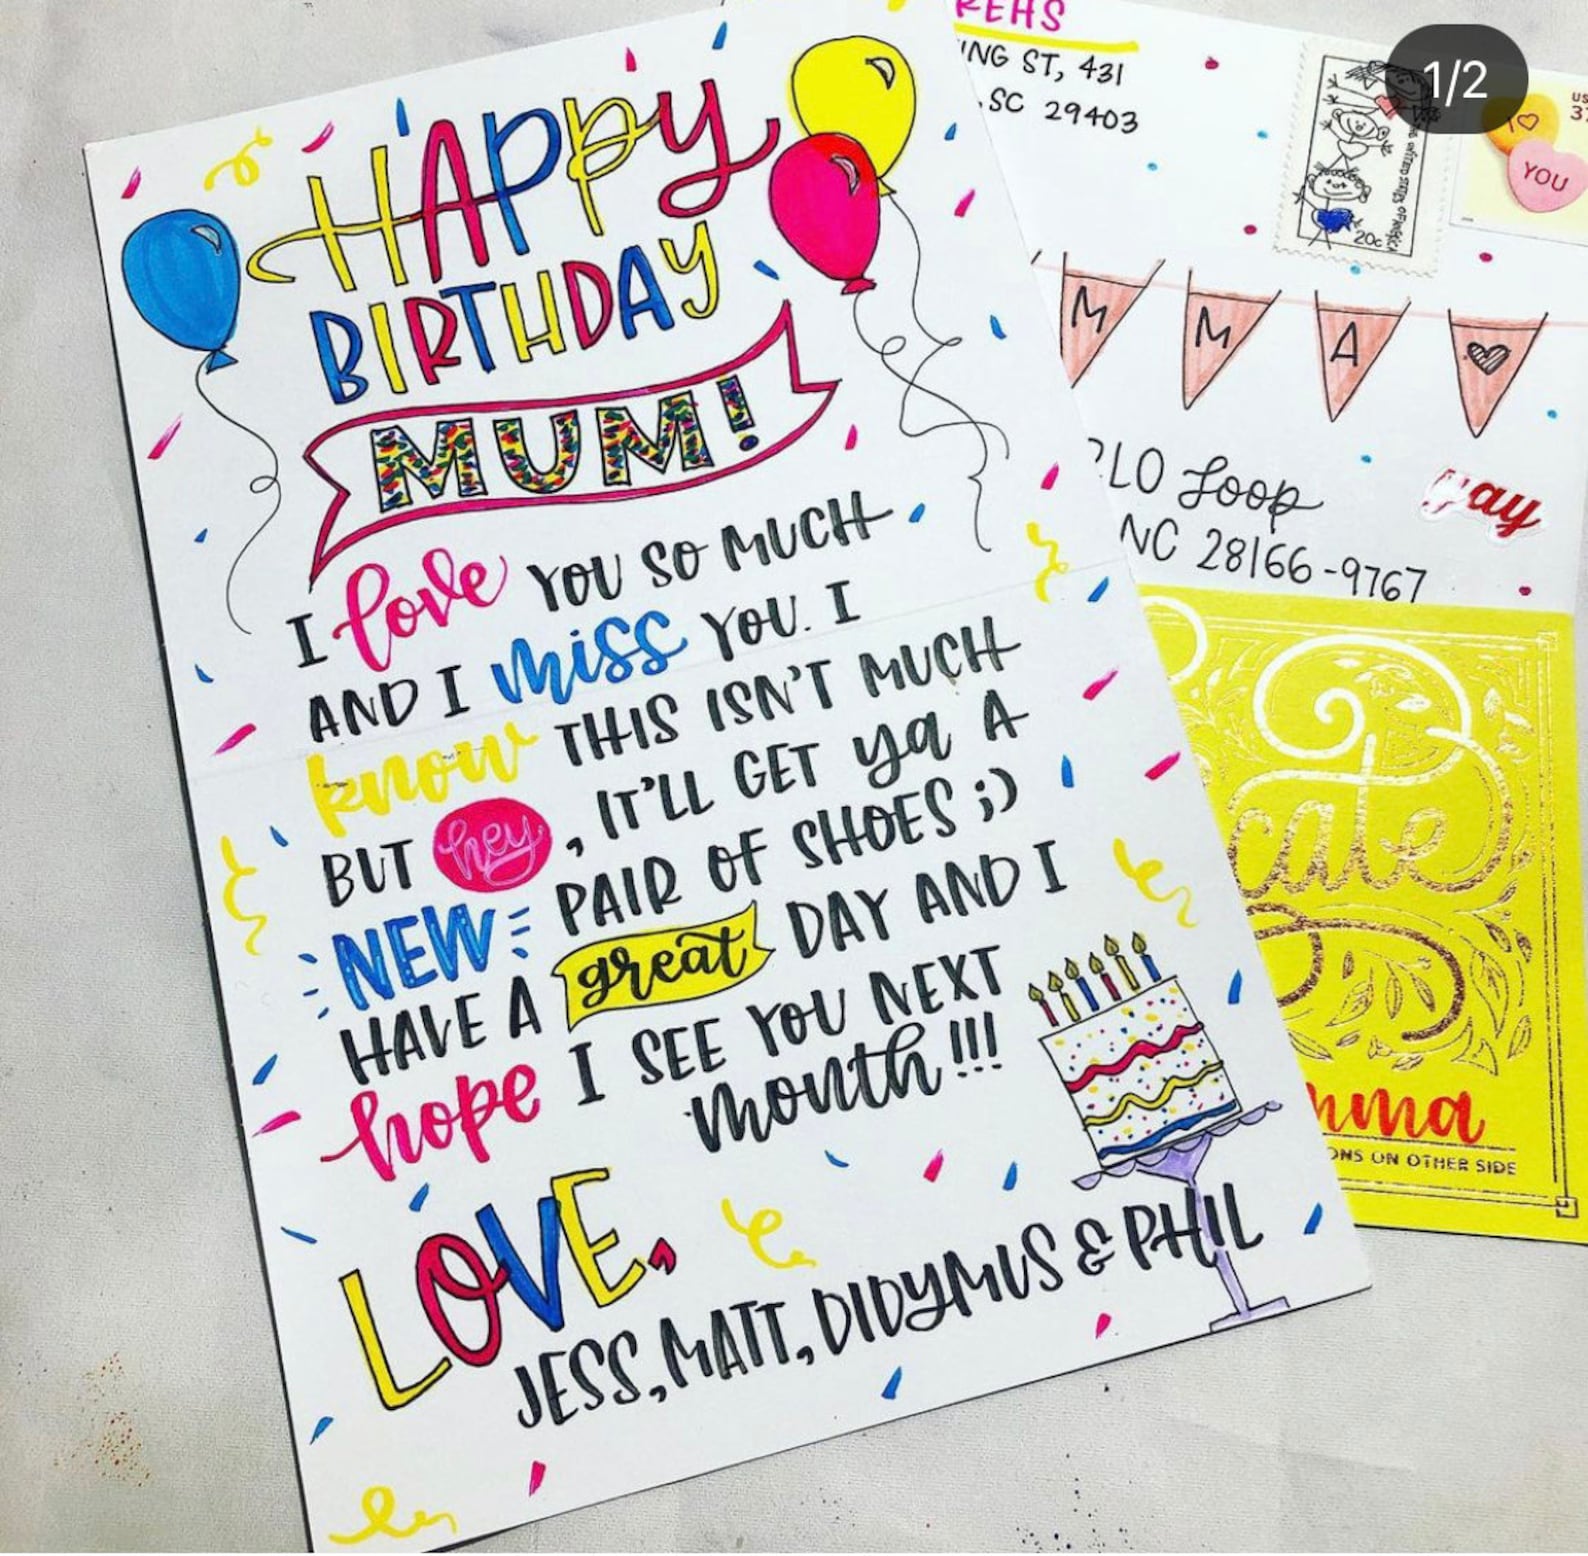 HAPPY
BIRTHDAY
MUM!
I love YOU SO MUCH
AND I miss YOU. I
know THIS ISN'T MUCH
BUT hey, IT'LL GET ya A
NEW PAIR OF SHOES ;)
HAVE A great DAY AND I
hope I SEE YOU NEXT
month!!!
LOVE,
JESS, MATT, DIDYMUS & PHIL
REHS
ING ST, 431
SC 29403
1/2
20c
US
37
I ♡
YOU
MMA
LO Loop
NC 28166-9767
yay
cate
mma
ONS ON OTHER SIDE